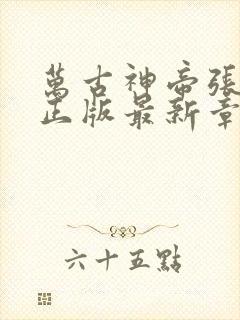 萬古神帝張
正版最新章
六十五點